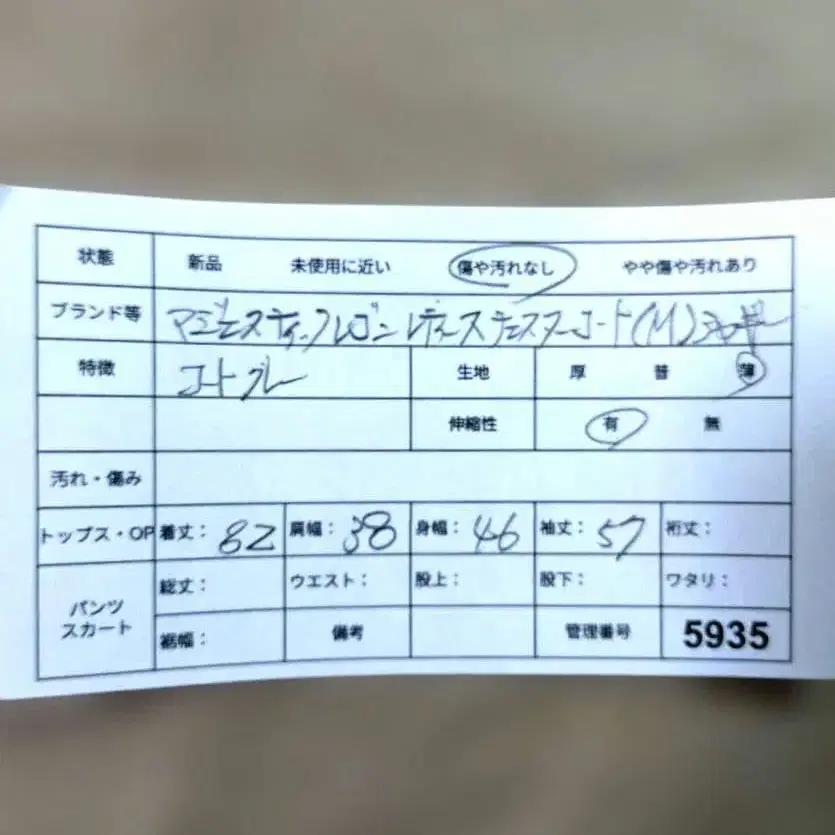 状態 新品 未使用に近い 傷や汚れなし やや傷や汚れあり
ブランド等 マジェスティックレゴン レディースチェスターコート(M)
特徴 コート グレー 生地 厚 普 薄
伸縮性 有 無
汚れ・傷み
トップス・OP 着丈: 82 肩幅: 38 身幅: 46 袖丈: 57 裄丈:
パンツ 総丈: ウエスト: 股上: 股下: ワタリ:
スカート 裾幅: 備考 管理番号 5935